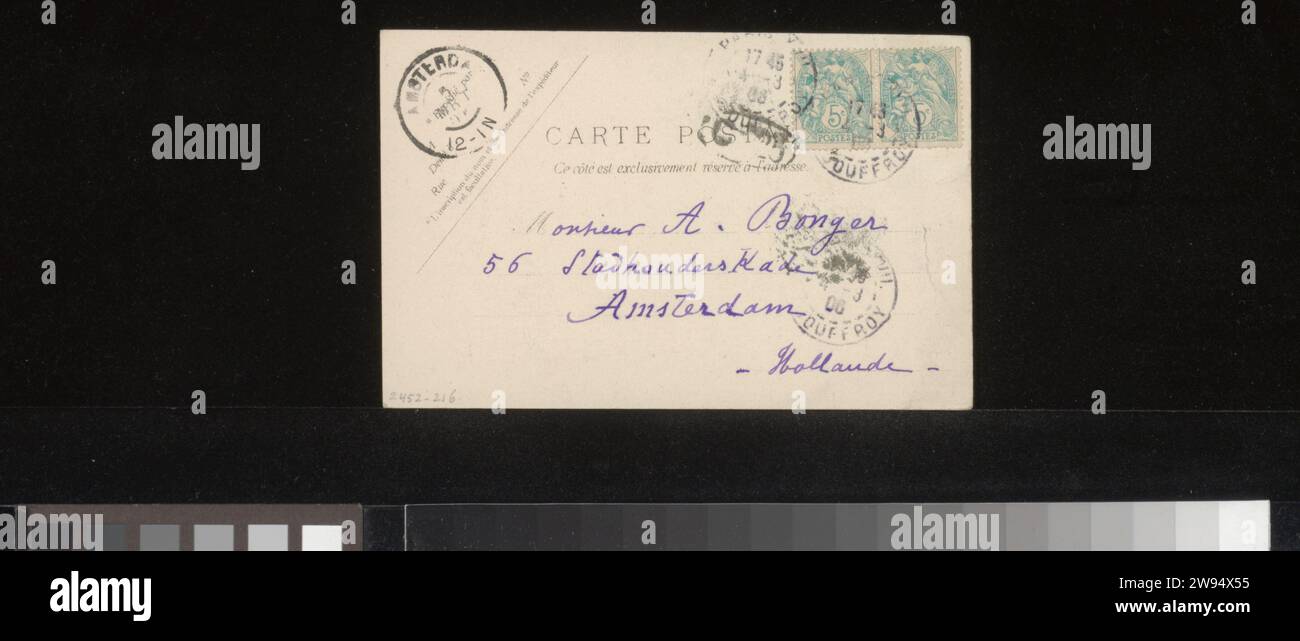 AMSTERDA
12-1N
17 45
4 -3
06
5
POSTES
17 45
DUFFROY
N°
CARTE POST
Ce côté est exclusivement réservé à l'adresse.
Rue
* L'inscription du nom et de l'adresse de l'expéditeur
est facultative.
Monsieur A. Bonger
56 Stadhouderskade
Amsterdam
- Hollande -
06
DUFFROY
2452-216
alamy
Image ID: 2W94X55
www.alamy.com